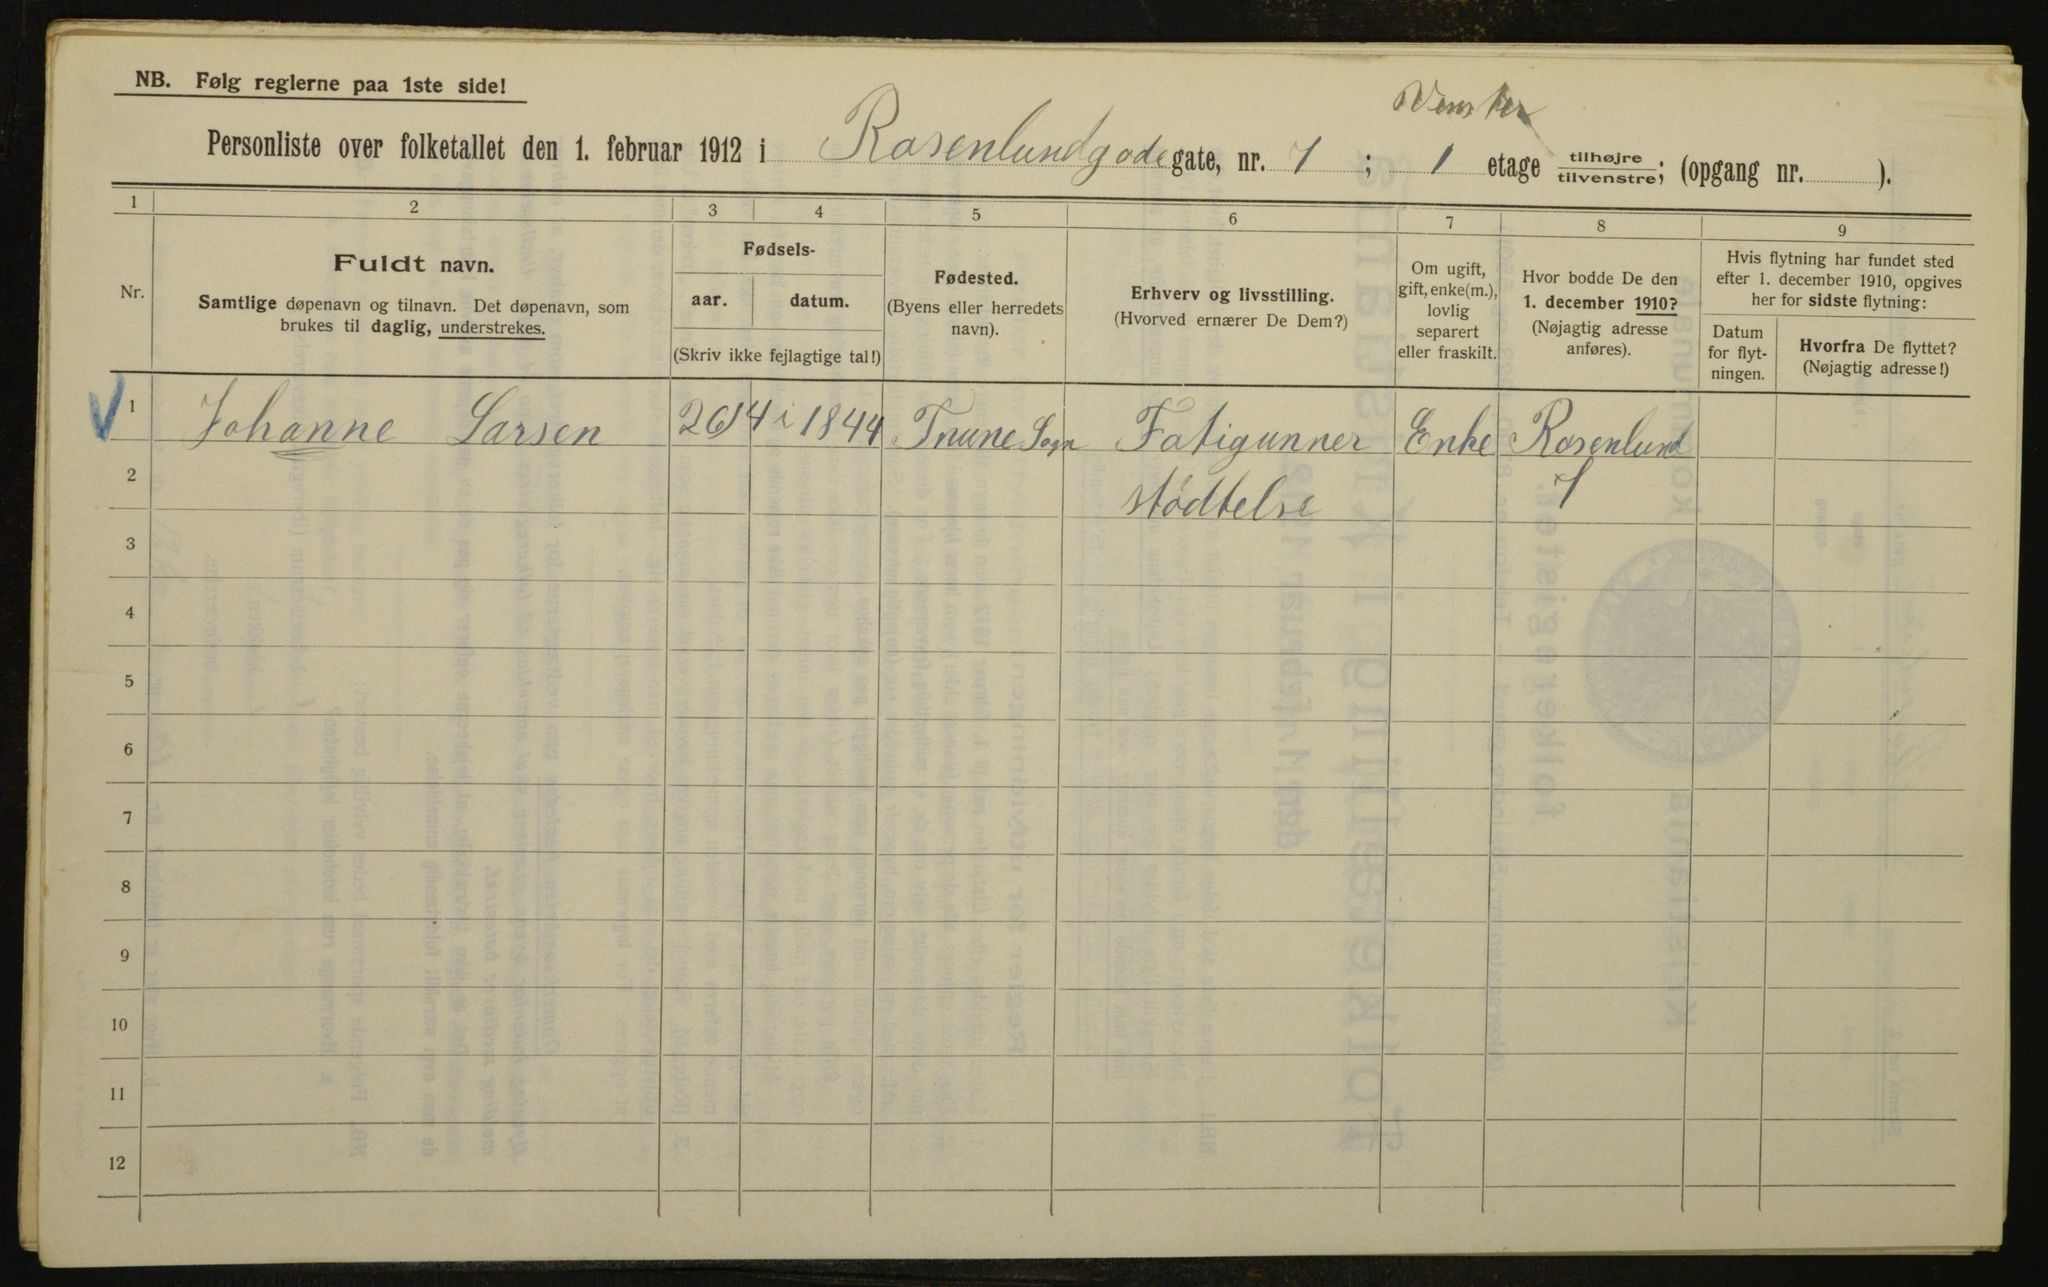 NB. Følg reglerne paa 1ste side!
Venster
Personliste over folketallet den 1. februar 1912 i Rosenlundgade gate, nr. 7 ; 1 etage tilhøjre/tilvenstre; (opgang nr. ).
1 2 3 4 5 6 7 8 9
Nr.
Fuldt navn.
Samtlige døpenavn og tilnavn. Det døpenavn, som
brukes til daglig, understrekes.
Fødsels-
aar. datum.
(Skriv ikke fejlagtige tal!)
Fødested.
(Byens eller herredets
navn).
Erhverv og livsstilling.
(Hvorved ernærer De Dem?)
Om ugift,
gift, enke(m.),
lovlig
separert
eller fraskilt.
Hvor bodde De den
1. december 1910?
(Nøjagtig adresse
anføres).
Hvis flytning har fundet sted
efter 1. december 1910, opgives
her for sidste flytning:
Datum
for flyt-
ningen.
Hvorfra De flyttet?
(Nøjagtig adresse!)
1 Johanne Larsen 26/4 1844 Sogn Fatigunner Enke Rosenlund
2 stødtelse 7
3
4
5
6
7
8
9
10
11
12